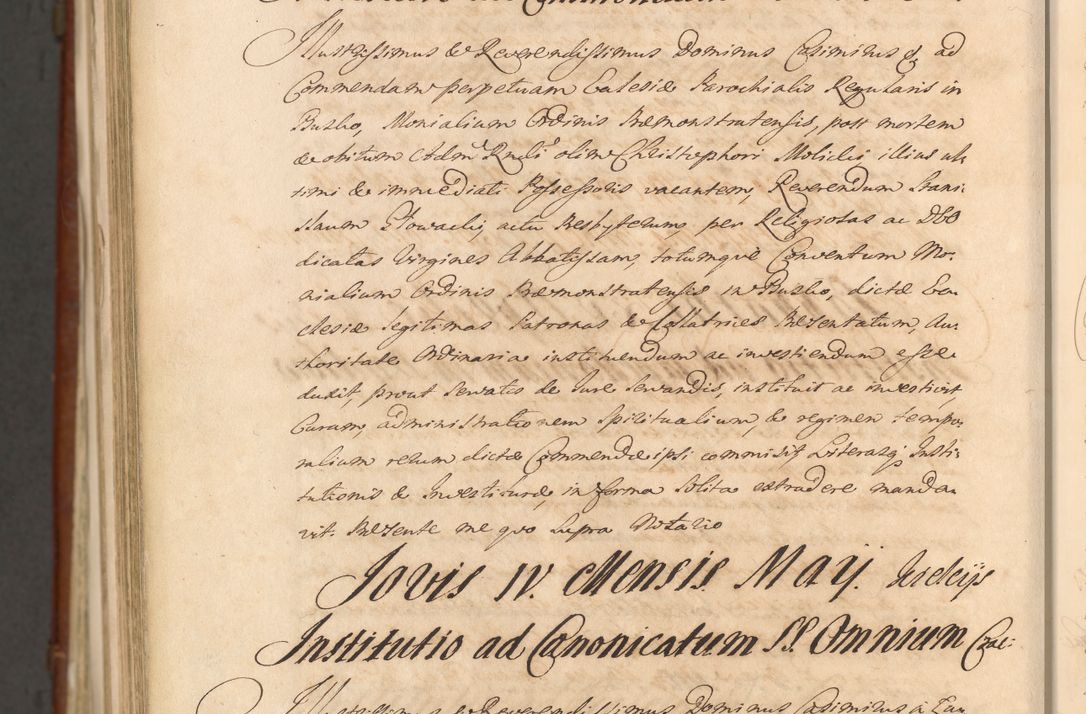 Illustrissimus & Reverendissimus Dominus Casimirus &c. ad
Commendam perpetuam Ecclesiæ Parochialis Regularis in
Busko, Monialium Ordinis Præmonstratensis, post mortem
ac obitum Adm. Rndi olim Christophori Molicki illius ul-
timi & immediati Possessoris vacantem, Reverendum Stani-
slaum Głowacki, actu Presbyterum, per Religiosas ac DEO
dicatas Virgines Abbatissam, totumque Conventum Mo-
nialium Ordinis Præmonstratensis in Busko, dictæ Ec-
clesiæ legitimas Patronas & Collatrices Præsentatum, Au-
thoritate Ordinaria instituendum ac investiendum esse
duxit, prout servatis de Jure servandis, instituit ac investivit,
Curam, administrationem spiritualium, & regimen tempo-
ralium rerum dictæ Commendæ ipsi commisit Literasq. Insti-
tutionis & Investituræ, in forma solita extradere manda-
vit. Præsente me quo supra Notario
Jovis IV. Mensis Maij. Kielcijs
Institutio ad Canonicatum SS. Omnium Crac:
Illustrissimus & Reverendissimus Dominus Casimirus a